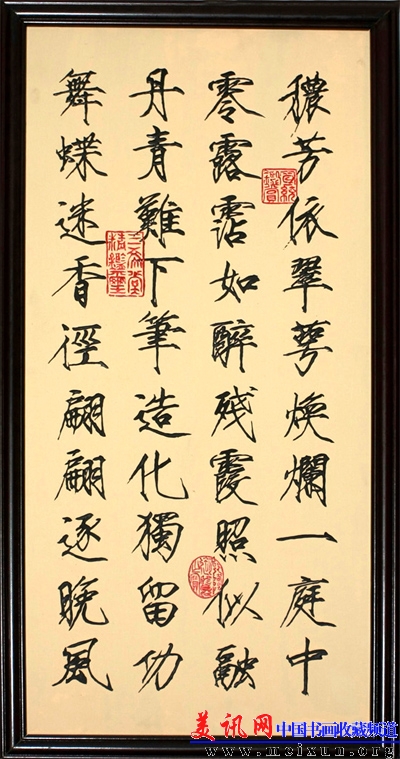 穠芳依翠萼煥爛一庭中
零露霑如醉殘霞照似融
丹青難下筆造化獨留功
舞蝶迷香徑翩翩逐晚風
美讯网 中国书画收藏频道
www.meixun.org